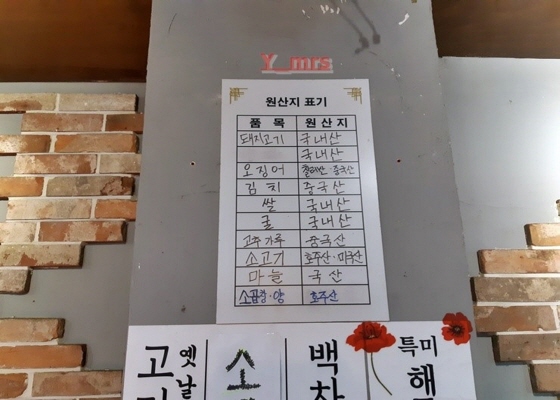 Y_mrs
원산지 표기
품 목 원 산 지
돼지고기 국내산
국내산
오징어 칠레산·중국산
김치 중국산
쌀 국내산
굴 국내산
고추가루 중국산
소고기 호주산·미국산
마늘 국산
소곱창·양 호주산
옛날
고
소
백
특미
해